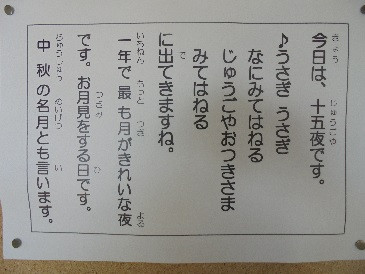 今日は、十五夜です。
♪うさぎ うさぎ
なにみてはねる
じゅうごやおつきさま
みてはねる
に出てきますね。
一年で最も月がきれいな夜
です。お月見をする日です。
中秋の名月とも言います。